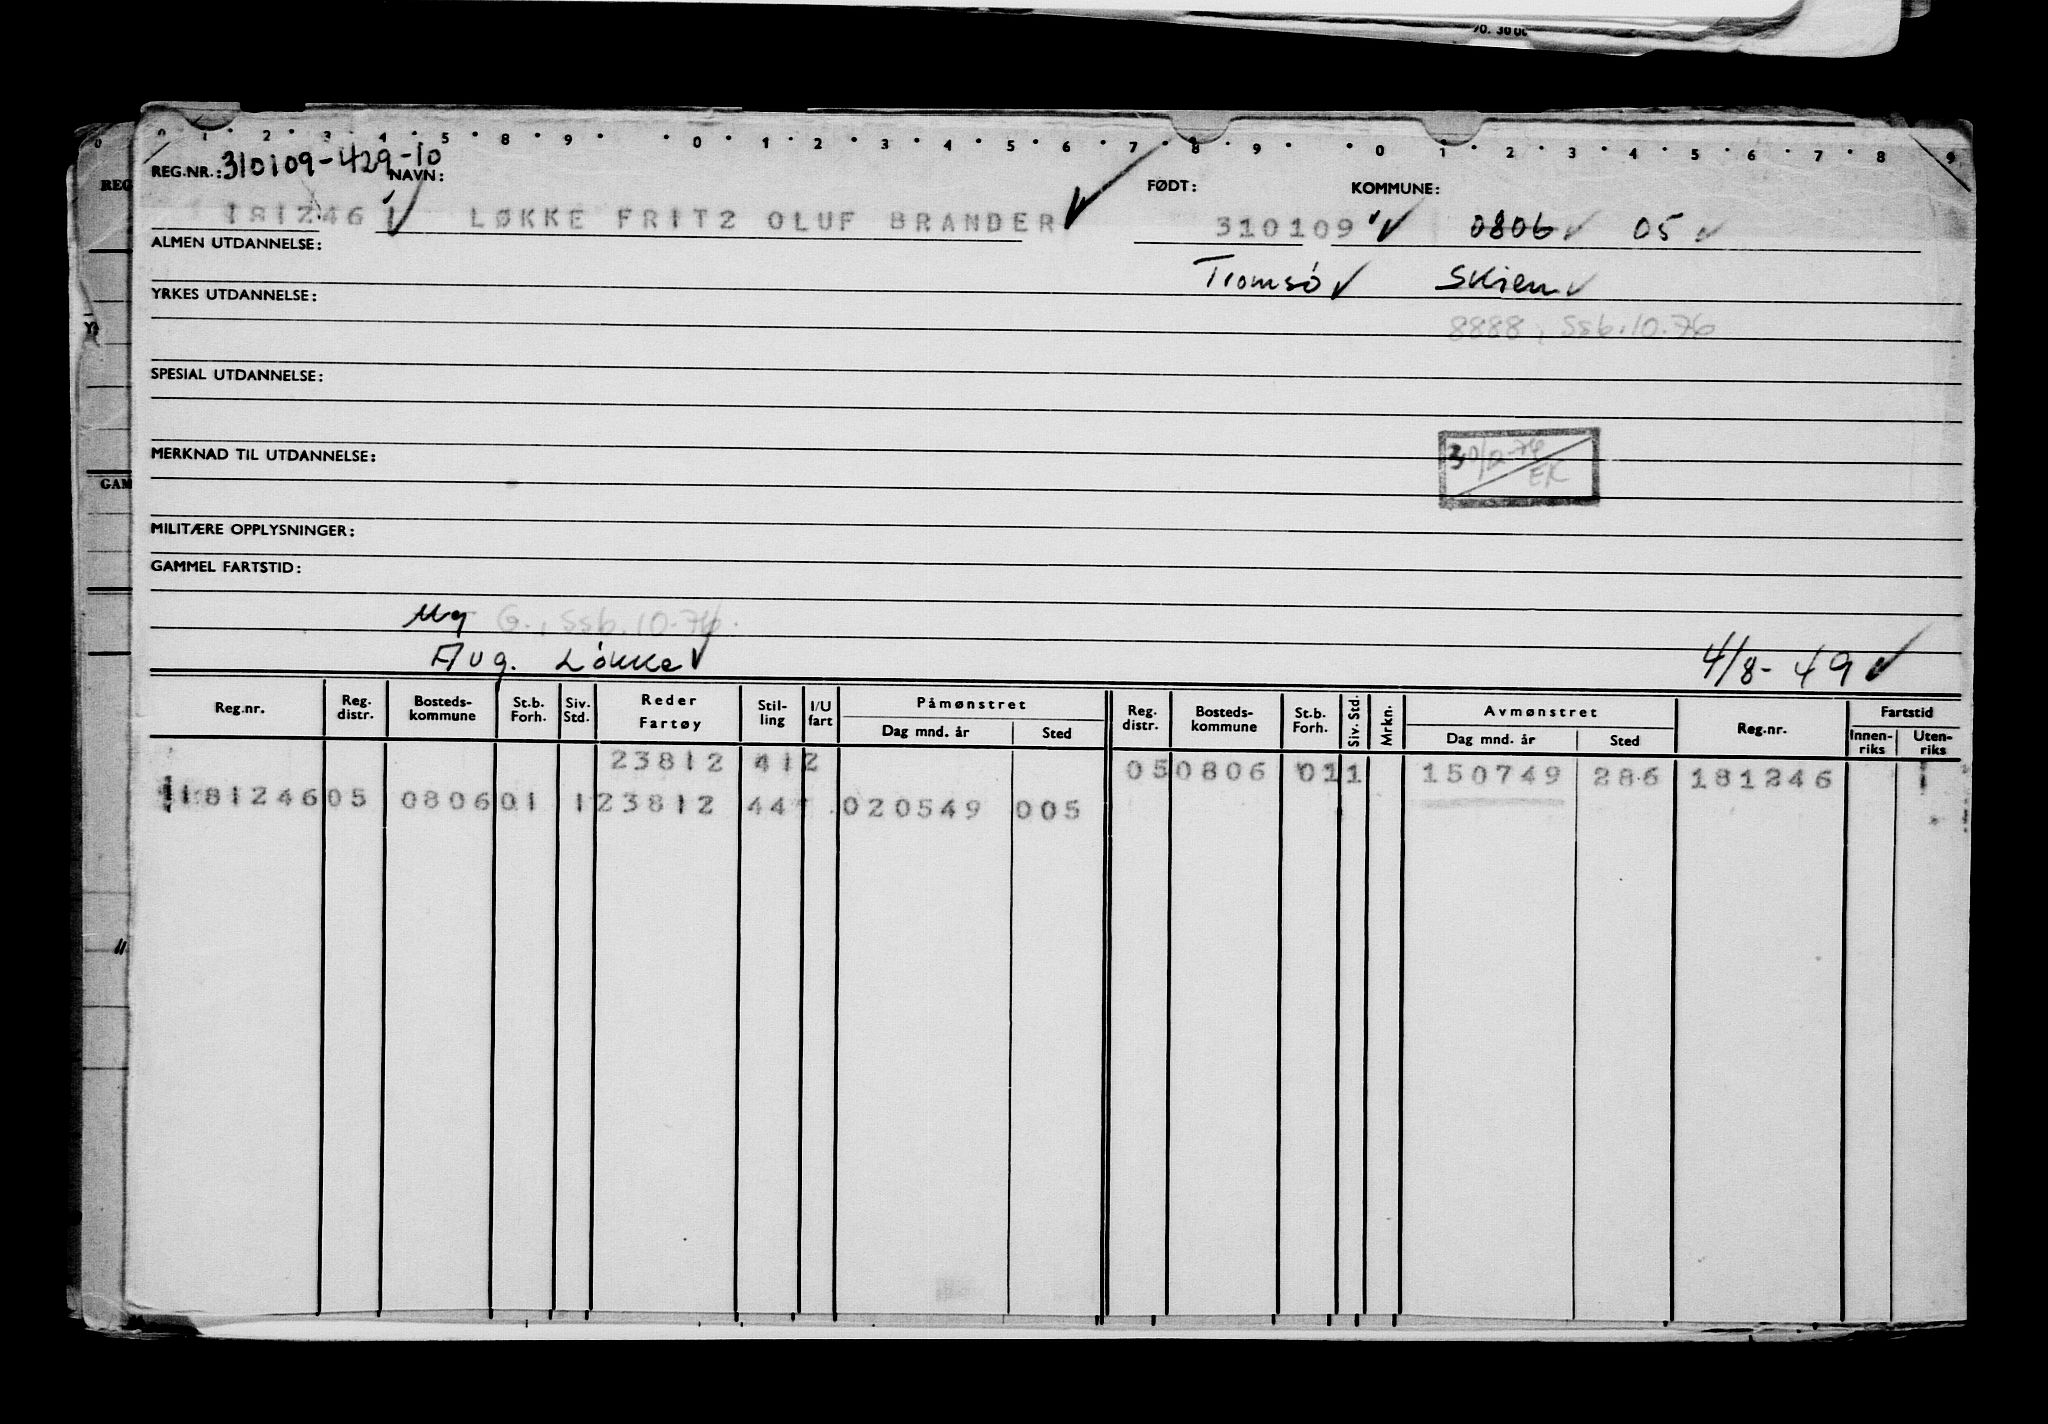 90. 3000
0 1 2 3 4 5 8 9 0 1 2 3 4 5 6 7 8 9 0 1 2 3 4 5 6 7 8 9
REG.NR.: 310109-429-10 NAVN: FØDT: KOMMUNE:
181246 1 LØKKE FRITZ OLUF BRANDER 310109 0806 05
ALMEN UTDANNELSE:
Tromsø Skien
YRKES UTDANNELSE:
8888, Ssb.10.76
SPESIAL UTDANNELSE:
MERKNAD TIL UTDANNELSE:
EK
MILITÆRE OPPLYSNINGER:
GAMMEL FARTSTID:
G., Ssb.10-76.
Aug. Løkke 4/8-49
Reg.nr. Reg. distr. Bosteds-kommune St.b. Forh. Siv. Std. Reder Fartøy Stil-ling I/U fart Påmønstret Dag mnd. år Sted Reg. distr. Bosteds-kommune St.b. Forh. Siv. Std. Mrkn. Avmønstret Dag mnd. år Sted Reg.nr. Fartstid Innen-riks Uten-riks
23812 412 05 0806 01 1 150749 286 181246
181246 05 0806 01 1 23812 44 020549 005